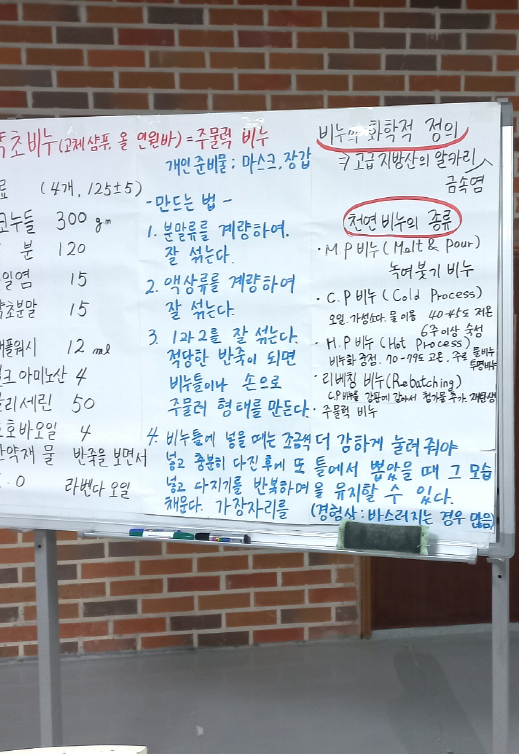 초비누(고체샴푸, 올 인원바) = 주물럭 비누
개인 준비물 ; 마스크, 장갑
(4개, 125±5)
300 gm
분 120
일염 15
초분말 15
12 ml
아미노산 4
리세린 50
호바오일 4
약재 물 반죽을 보면서
. O 라벤다 오일
- 만드는 법 -
1. 분말류를 계량하여.
잘 섞는다.
2. 액상류를 계량하여
잘 섞는다.
3. 1과 2를 잘 섞는다.
적당한 반죽이 되면
비누틀이나 손으로
주물러 형태를 만든다.
4. 비누틀에 넣을 때는 조금씩
넣고 충분히 다진 후에 또
넣고 다지기를 반복하여
채운다. 가장자리를
더 강하게 눌러줘야
틀에서 뽑았을 때 그 모습
을 유지할 수 있다.
(경험상 : 바스러지는 경우 많음)
비누의 화학적 정의
고급 지방산의 알카리
금속염
천연 비누의 종류
· M P 비누 (Melt & Pour)
녹여붓기 비누
· C. P 비누 (Cold Process)
오일. 가성소다. 물 이용 40-45도 저온
6주 이상 숙성
· H. P 비누 (Hot Process)
비누화 공정. 70-79도 고온. 주로 물비누
투명비누
· 리배칭 비누 (Rebatching)
C.P 비누를 첨가물 추가.
· 주물럭 비누